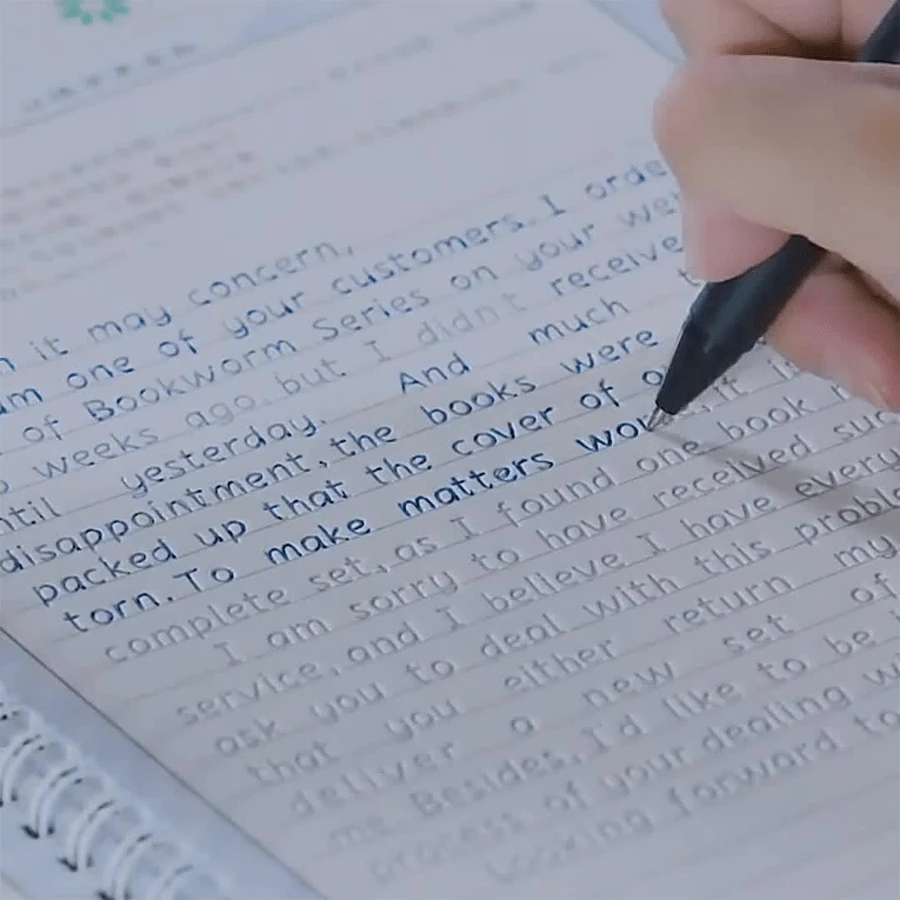 it may concern,
am one of your customers. I orde
of Bookworm Series on your we
weeks ago, but I didn't receive
ntil yesterday. And much t
disappointment, the books were
packed up that the cover of o
torn. To make matters wor , it i
complete set, as I found one book
I am sorry to have received suc
service, and I believe I have every
ask you to deal with this proble
that you either return my
deliver a new set of
me. Besides, I'd like to be
process of your dealing w
Looking forward to